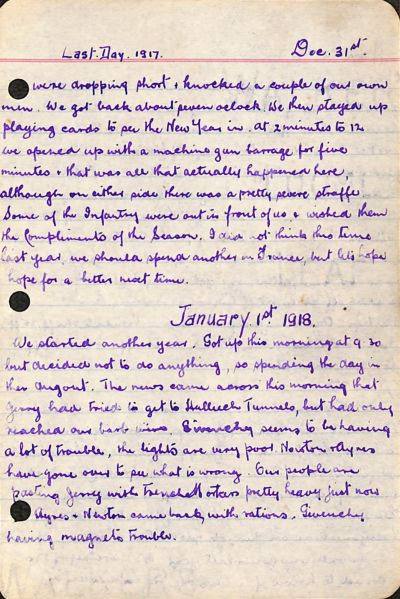 Last. Day. 1917. Dec. 31st.
were dropping short & knocked a couple of our own
men. We got back about seven oclock. We then stayed up
playing cards to see the New Year in. At 2 minutes to 12
we opened up with a machine gun barrage for five
minutes & that was all that actually happened here,
although on either side there was a pretty severe straffe
Some of the Infantry were out in front of us & wished them
the Compliments of the Season. I did not think this time
last year, we should spend another in France, but let's hope
hope for a better next time.
January. 1st 1918.
We started another year. Got up this morning at 9.30
but decided not to do anything, so spending the day in
the dugout. The news came across this morning that
Jerry had tried to get to Hulluch Tunnels, but had only
reached our barb wire. Givenchy seems to be having
a lot of trouble, the lights are very poor. Newton & Ayres
have gone over to see what is wrong. Our people are
pasting Jerry with Trench Mortars pretty heavy just now
Ayres & Newton came back, with rations. Givenchy
having magneto trouble.